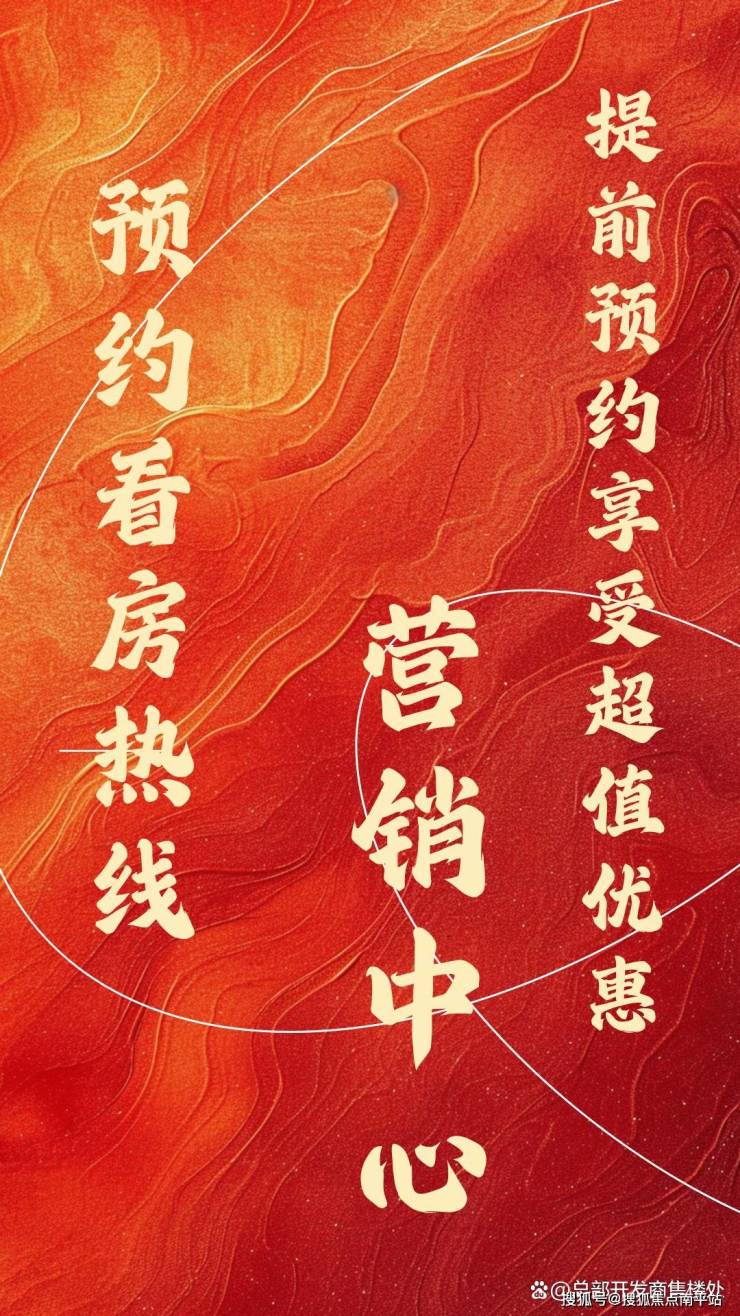 提前预约享受超值优惠
营销中心
预约看房热线
@总部开发商售楼处
搜狐号@搜狐焦点南平站